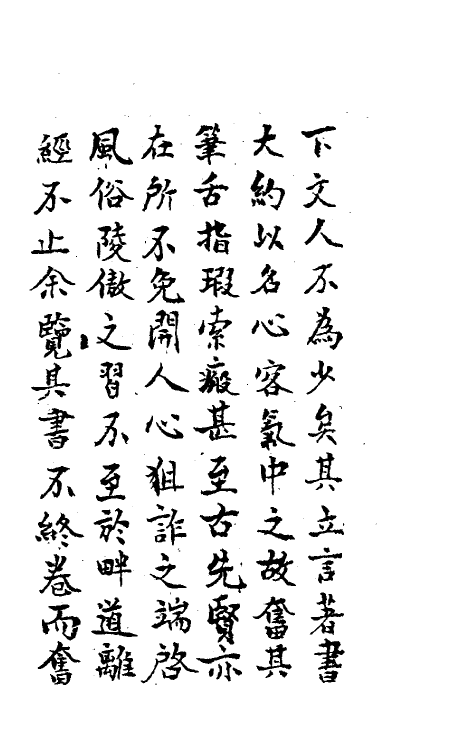 下文人不為少矣其立言著書
大約以名心客氣中之故奮其
筆舌指瑕索瘢甚至古先賢亦
在所不免開人心狙詐之端啓
風俗陵傲之習不至於畔道離
經不止余覽其書不終卷而奮